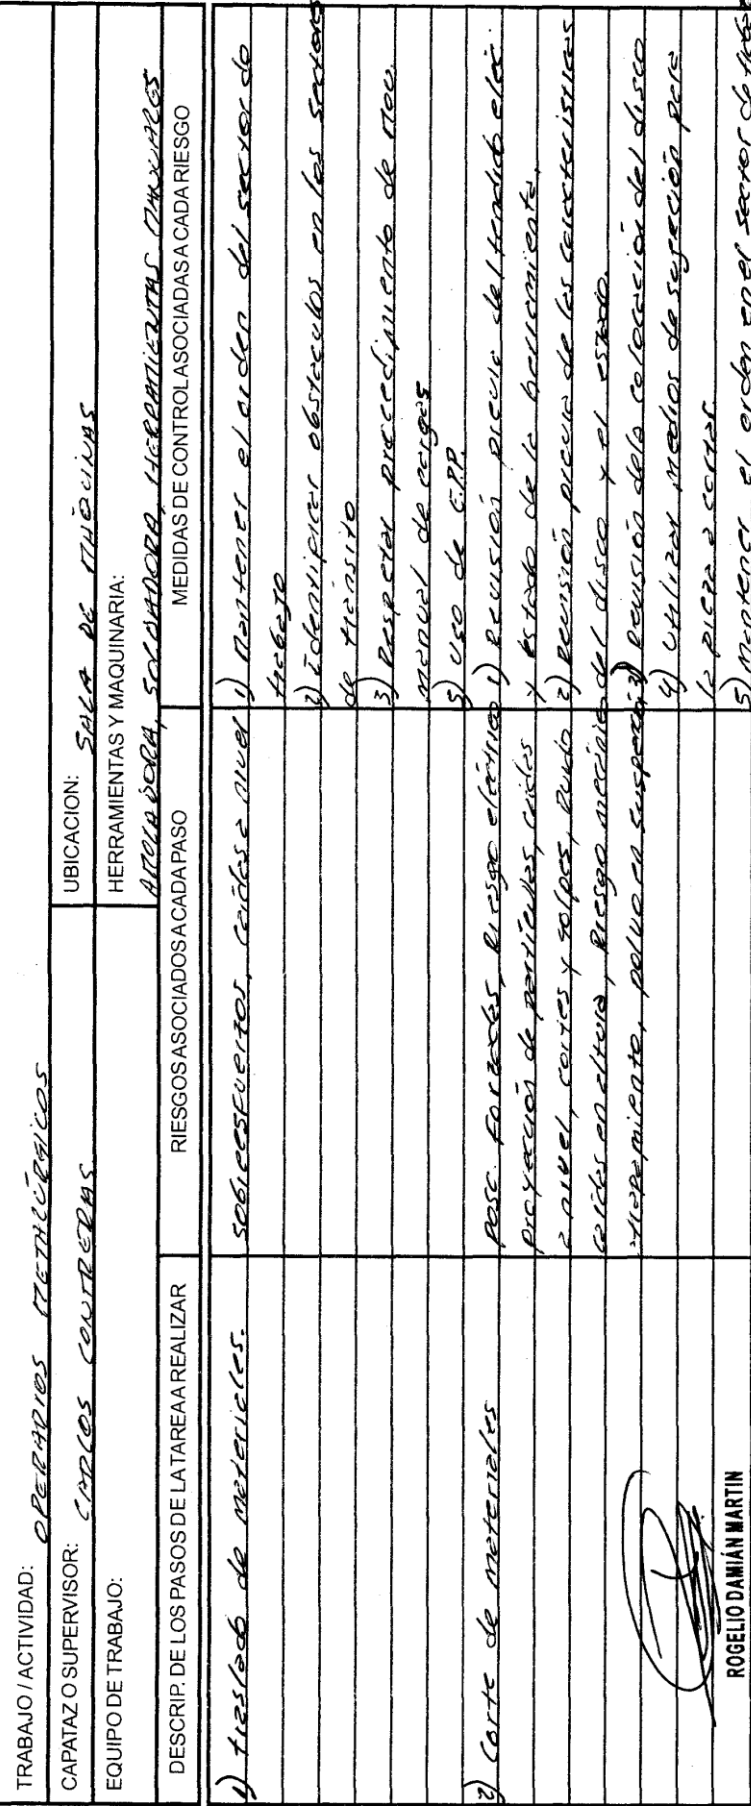 TRABAJO / ACTIVIDAD: OPERARIOS METALÚRGICOS
CAPATAZ O SUPERVISOR: CARLOS CONTRERAS
UBICACION: SALA DE MÁQUINAS
EQUIPO DE TRABAJO:
HERRAMIENTAS Y MAQUINARIA:
AMOLADORA, SOLDADORA, HERRAMIENTAS MANUALES
DESCRIP. DE LOS PASOS DE LA TAREA A REALIZAR
RIESGOS ASOCIADOS A CADA PASO
MEDIDAS DE CONTROL ASOCIADAS A CADA RIESGO
1) traslado de materiales.
sobreesfuerzos, caídas a nivel
1) Mantener el orden del sector de
trabajo
2) identificar obstaculos en los sectores
de tránsito
3) Respetar procedimiento de mov.
manual de cargas
5) uso de E.P.P.
2) Corte de materiales
posc. Forzadas, Riesgo eléctrico
proyección de partículas, caídas
a nivel, cortes y golpes, Ruido
caídas en altura, Riesgo mecánico
atrapamiento, polvo en suspensió
1) Revisión previa del tendido eléc.
y estado de la herramienta.
2) Revisión previa de las características
del disco y el estado.
3) Revisión dela colocación del disco
4) Utilizar medios de sujeción para
la pieza a cortar.
5) Mantener el orden en el sector de trabajo
ROGELIO DAMIÁN MARTIN